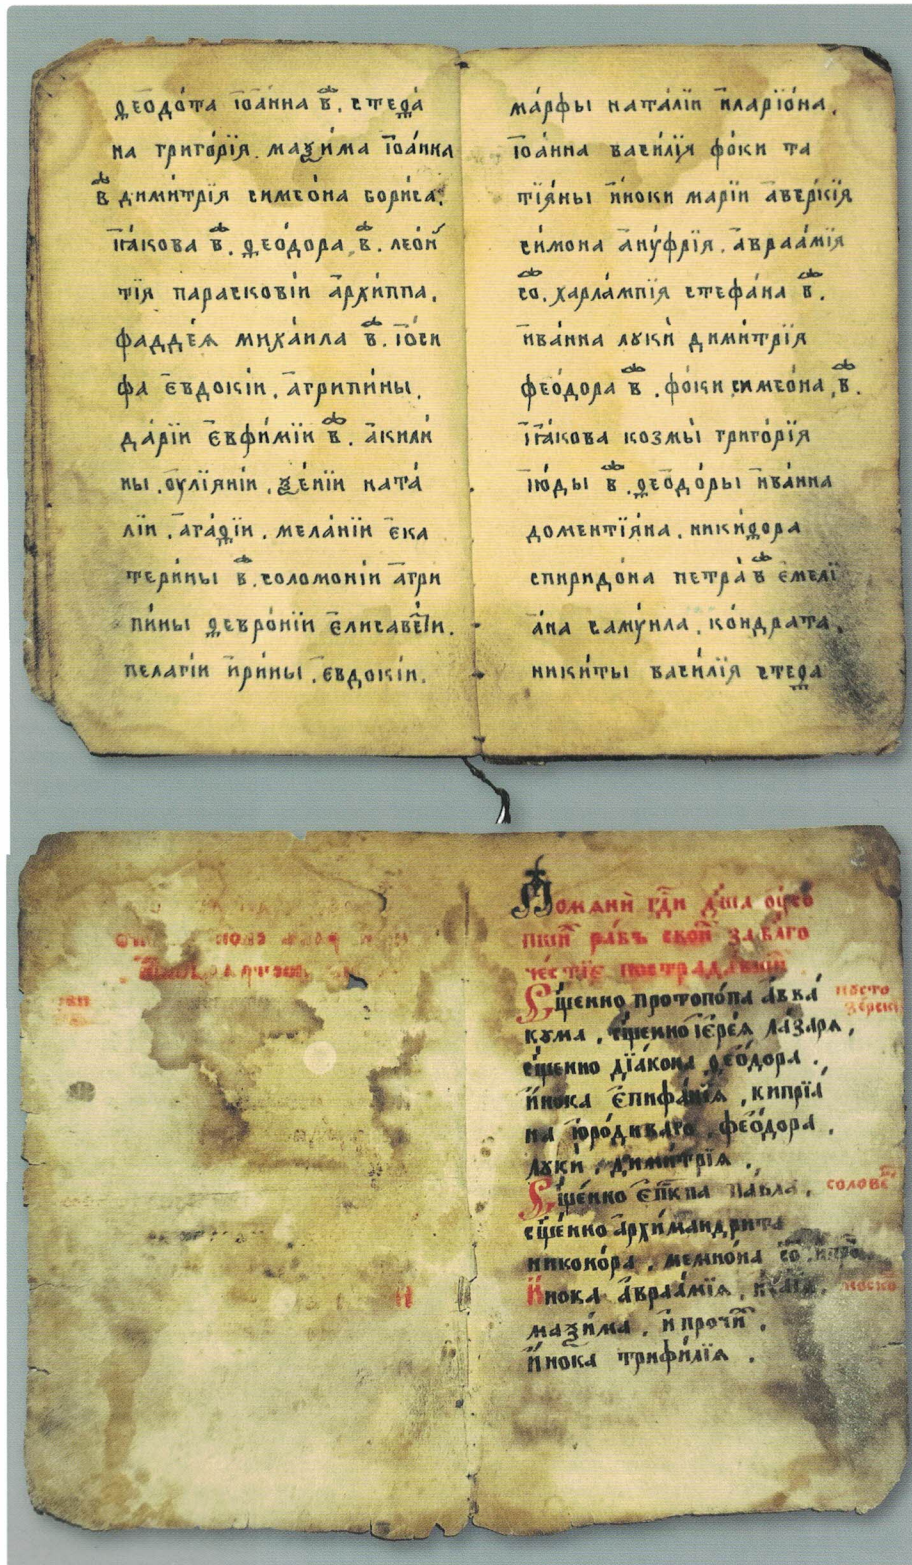 ѳеодо́та іѡа́нна в҃. стеѳа́
на григо́рїѧ. маѯи́ма іѡа́нна
в҃ дими́трїѧ симео́на бори́са.
їа́кова в҃. ѳео́дора в҃. лео́н
тїѧ параскові́и архи́ппа.
фадде́ѧ миха́ила в҃. іо́си
фа евдокі́и. агрипи́ны.
да́рїи евфи́мїи в҃. акили́
ны. оулїѧні́и. ѯе́нїи ната́
лїи. ага́ѳїи. мела́нїи ека
тери́ны в҃. соломоні́и агри
пи́ны ѳевро́нїи елисаве́ѳи.
пелагі́и ири́ны. евдокі́и.
ма́рфы ната́лїи иларїо́на.
іѡа́нна васи́лїѧ фо́ки та
тїѧ́ны и́ноки марі́и аве́ркїѧ
си́мона ану́фрїѧ. авраа́мїѧ
со. харла́мпїѧ стефа́на в҃.
ива́нна луки́ дими́трїѧ
фео́дора в҃. фо́ки симео́на в҃.
їа́кова козмы̀ григо́рїѧ
їю́ды в҃. ѳеодо́ры ива́нна
доментїѧ́на. ники́ѳора
спиридо́на петра̀ в҃ емелї
а́на саму́ила. ко́ндрата.
ники́ты васи́лїѧ стеѳа
Помѧнѝ гд҃и дш҃а оусо
пши́й ра́бъ свои́й за бл҃го
че́стїе пострада́вшїи
Сщ҃е́нно протопо́па авва́ пусто
кума. сщ҃е́нно іере́ѧ ла́зарѧ, зе́рскї
сщ҃е́нно дїа́кона ѳео́дора.
и́нока епифа́нїѧ. кипрїа́
на юро́диваго. фео́дора.
лукѝ. дими́трїѧ.
Сщ҃е́нно еп҃кпа па́вла. солове́
сщ҃е́нно архимандри́та
никоно́ра. мемно́на со
И́нока авраа́мїѧ, иса́їа, моско
маѯи́ма. и прочи́й.
и́нока трифи́лїѧ.